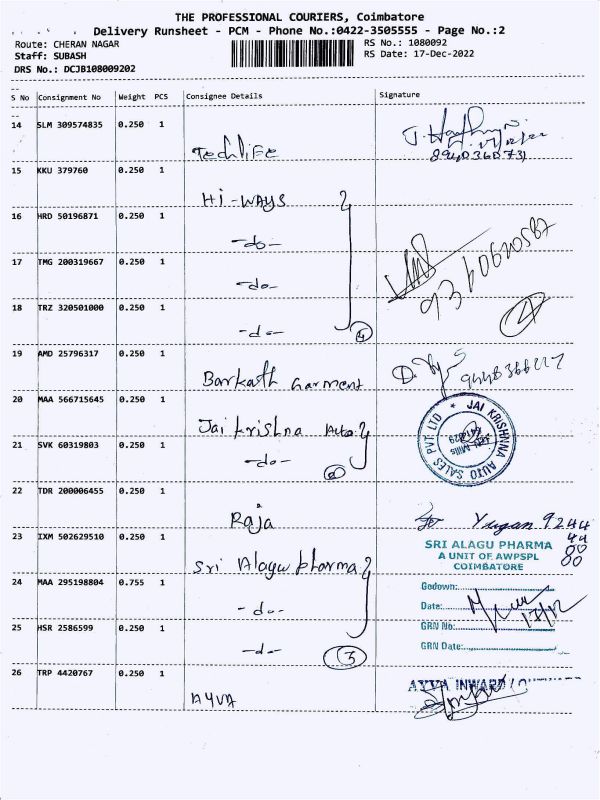 THE PROFESSIONAL COURIERS, Coimbatore
Delivery Runsheet - PCM - Phone No.:0422-3505555 - Page No.:2
Route: CHERAN NAGAR
RS No.: 1080092
Staff: SUBASH
RS Date: 17-Dec-2022
DRS No.: DCJB108009202
S No Consignment No Weight PCS Consignee Details Signature
14 SLM 309574835 0.250 1
Techlife
15 KKU 379760 0.250 1
Hi-WAYS
16 HRD 50196871 0.250 1
-do-
17 TMG 200319667 0.250 1
-do-
18 TRZ 320501000 0.250 1
-do- 4
4
19 AMD 25796317 0.250 1
Barkath Garment
20 MAA 566715645 0.250 1
Jai krishna Auto
JAI KRISHNNA AUTO SALES PVT LTD
21 SVK 60319803 0.250 1
-do- 2
22 TDR 200006455 0.250 1
Raja
Yugan 9244
44
00
80
23 IXM 502629510 0.250 1
Sri Alagu pharma
SRI ALAGU PHARMA
A UNIT OF AWPSPL
COIMBATORE
24 MAA 295198804 0.755 1
-do-
Godown:
Date:
17/12
25 HSR 2586599 0.250 1
-do- 3
GRN No:
GRN Date:
26 TRP 4420767 0.250 1
AYVA
AYVA INWARD /